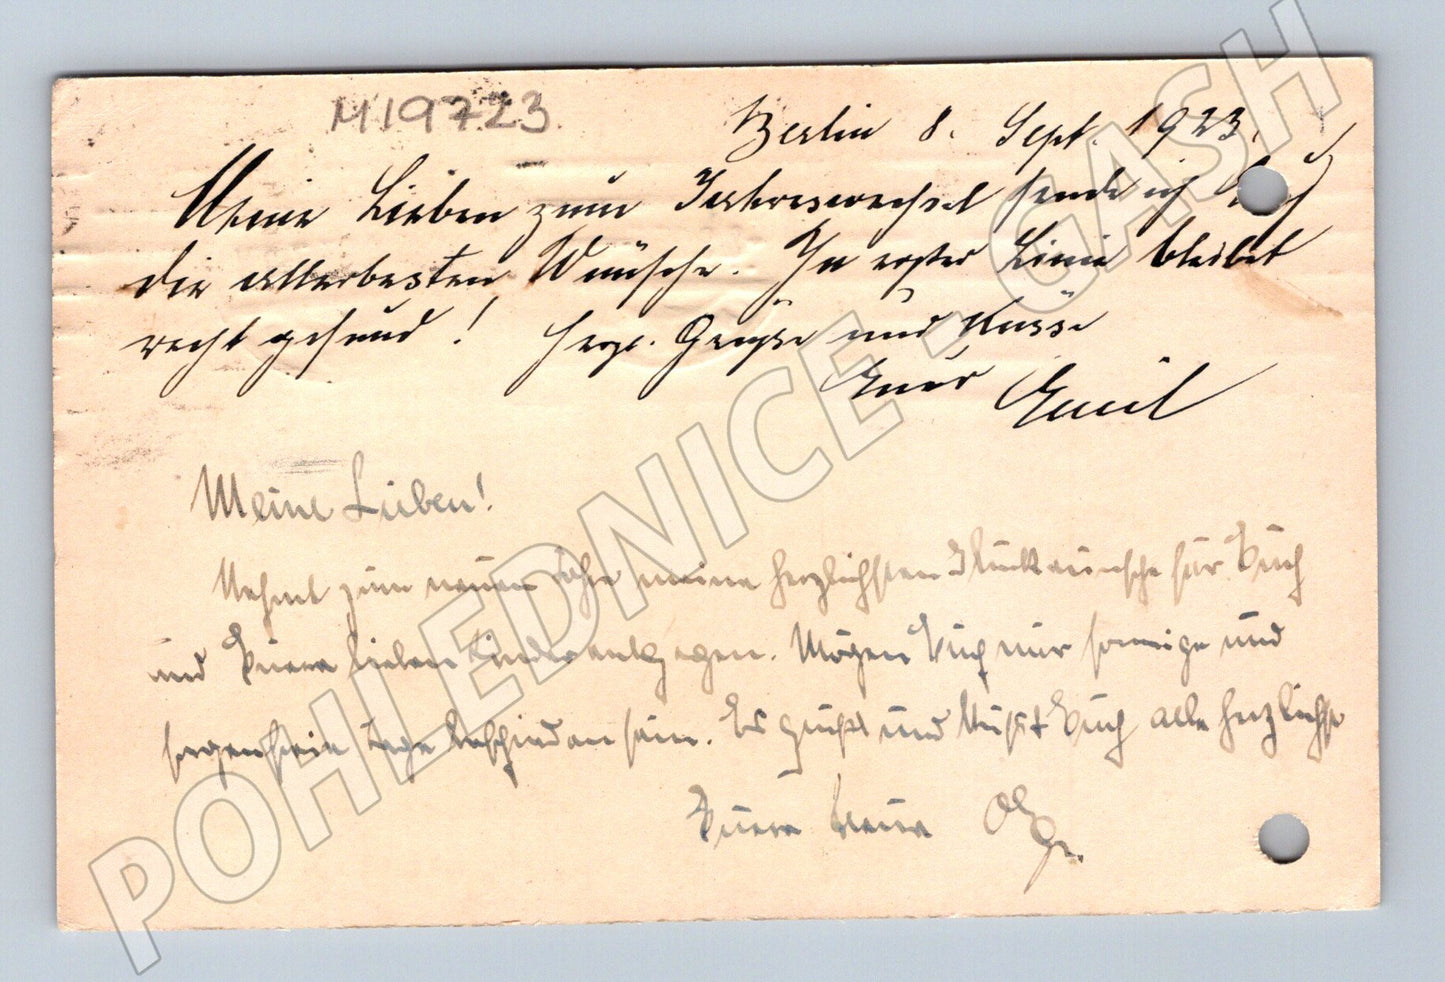 M19723
Berlin 8. Sept. 1923.
Meine Lieben zum Jahreswechsel sende ich Euch
die allerbesten Wünsche. In erster Linie bleibet
recht gesund! Herzl. Grüße und Küsse
Euer Emil
Meine Lieben!
Nehmt zum neuen Jahre meine herzlichsten Glückwünsche für Euch
und Euere lieben Kinder entgegen. Mögen Euch nur sonnige und
segensreiche Tage beschieden sein. Es grüßt und küßt Euch alle herzlichst
Euere treue Olga.
POHLEDNICE - GASH